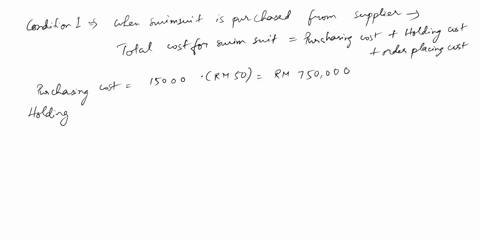 Condition I → when swimsuit is purchased from supplier →
Total cost for swim suit = Purchasing cost + Holding cost
+ order placing cost
Purchasing cost = 15000 · (RM 50) = RM 750,000
Holding